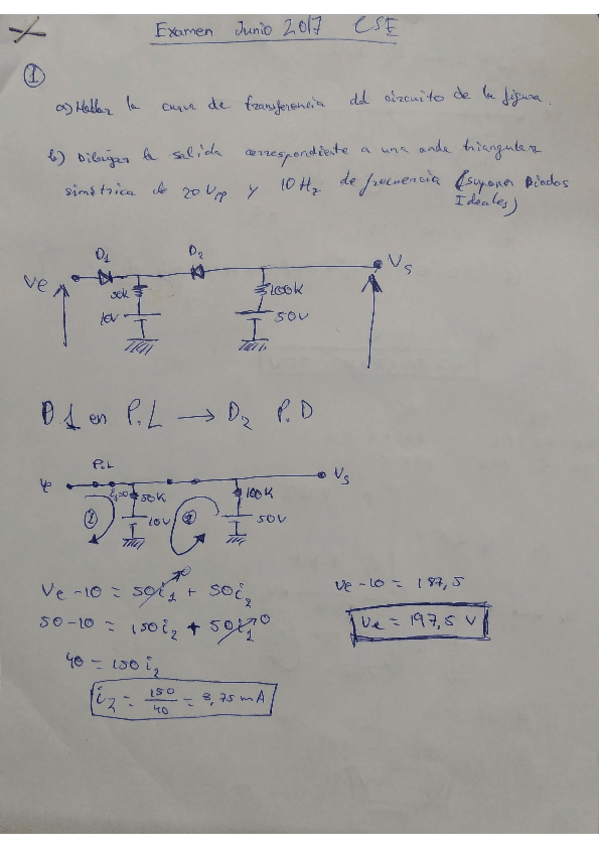 Examen Junio 2017 CSE
1
a) Hallar la curva de transferencia del circuito de la figura.
b) Dibujar la salida correspondiente a una onda triangular
simétrica de 20 Vpp y 10 Hz de frecuencia (suponer Diodos
Ideales)
D1 D2
Ve Vs
50k 100K
10V 50V
D1 en P.L → D2 P.D
P.L
Ve i1=0 50K 100K Vs
1 10V 2 50V
Ve - 10 = 50i1 0 + 50i2
50 - 10 = 150i2 + 50i1 0
40 = 150 i2
i2 = 150/40 = 3,75 mA
Ve - 10 = 187,5
Ve = 197,5 V